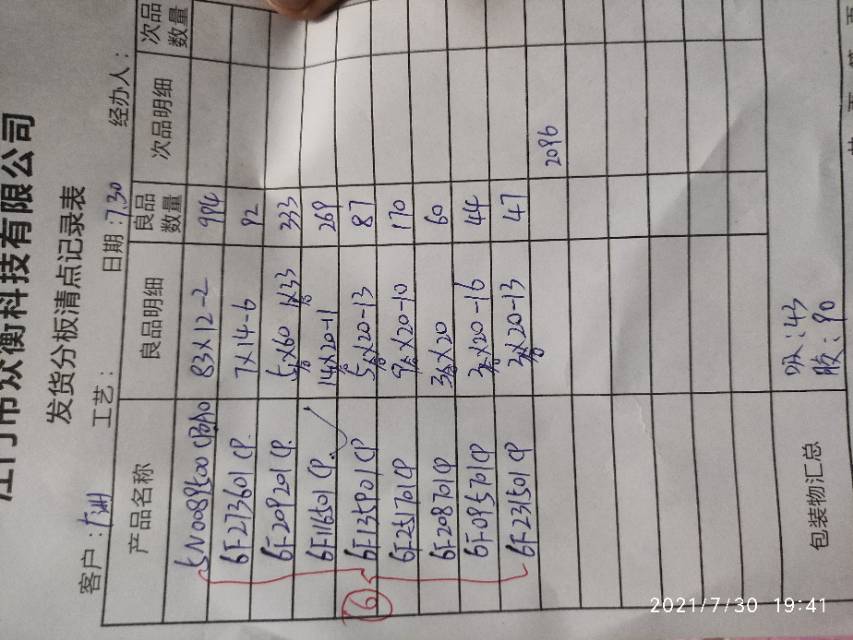 江门市众衡科技有限公司
发货分板清点记录表
客户: 工艺: 日期:7.30 经办人:
产品名称 良品明细 良品数量 次品明细 次品数量
83X12-2 994
6F273601CP. 7X14-6 92
6F209201CP. 5包X60 1X33 333
6F116501CP. 14X20-1 269
6F135901CP 5包X20-13 87
6F251701CP 9包X20-10 170
6F208701CP 3包X20 60
6F095701CP 3包X20-16 44
6F231501CP 3包X20-13 47
2096
6
包装物汇总 吸:43
胶:90
2021/7/30 19:41